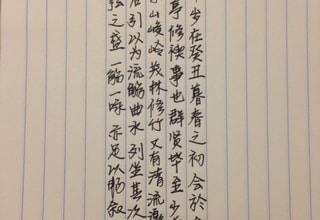 岁在癸丑暮春之初会於
亭修禊事也群贤毕至少
山峻岭茂林修竹又有清流激
右引以为流觞曲水列坐其次
弦之盛一觞一咏亦足以畅叙